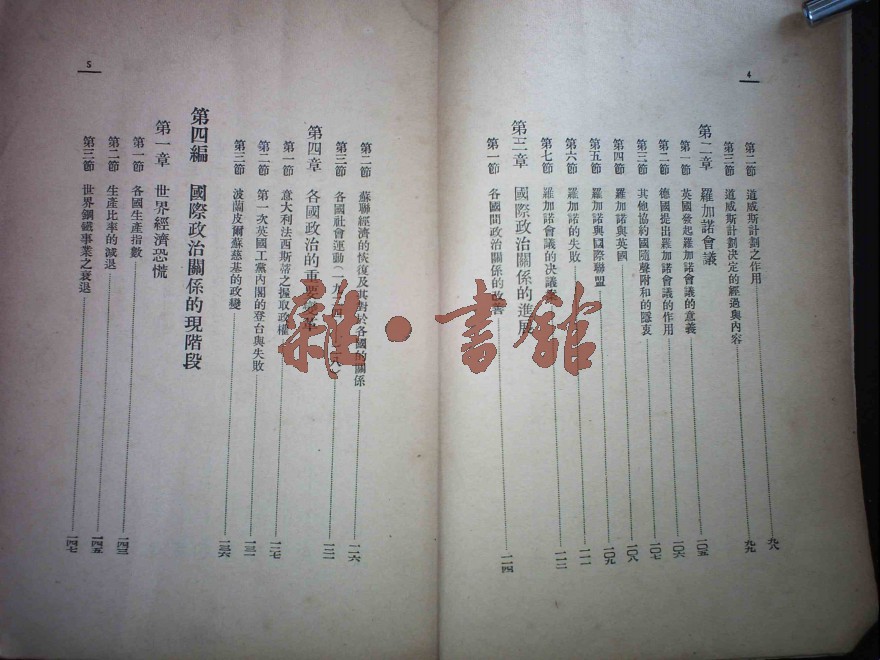 4
第二節 道威斯計劃之作用 九八
第三節 道威斯計劃決定的經過與內容 九九
第二章 羅加諾會議
第一節 英國發起羅加諾會議的意義 一〇五
第二節 德國提出羅加諾會議的作用 一〇六
第三節 其他協約國隨聲附和的隱衷 一〇七
第四節 羅加諾與英國 一〇八
第五節 羅加諾與國際聯盟 一〇九
第六節 羅加諾的失敗 一一一
第七節 羅加諾會議的決議案 一一二
第三章 國際政治關係的進展
第一節 各國間政治關係的改善 一一四
5
第二節 蘇聯經濟的恢復及其對於各國的關係 一一六
第三節 各國社會運動
第四章 各國政治的重要變革
第一節 意大利法西斯蒂之握取政權 一二七
第二節 第一次英國工黨內閣的登台與失敗 一三一
第三節 波蘭皮爾蘇慈基的政變 一三六
第四編 國際政治關係的現階段
第一章 世界經濟恐慌
第一節 各國生產指數 一四三
第二節 生產比率的減退 一四五
第三節 世界鋼鐵事業之衰退 一四七
雜·書館